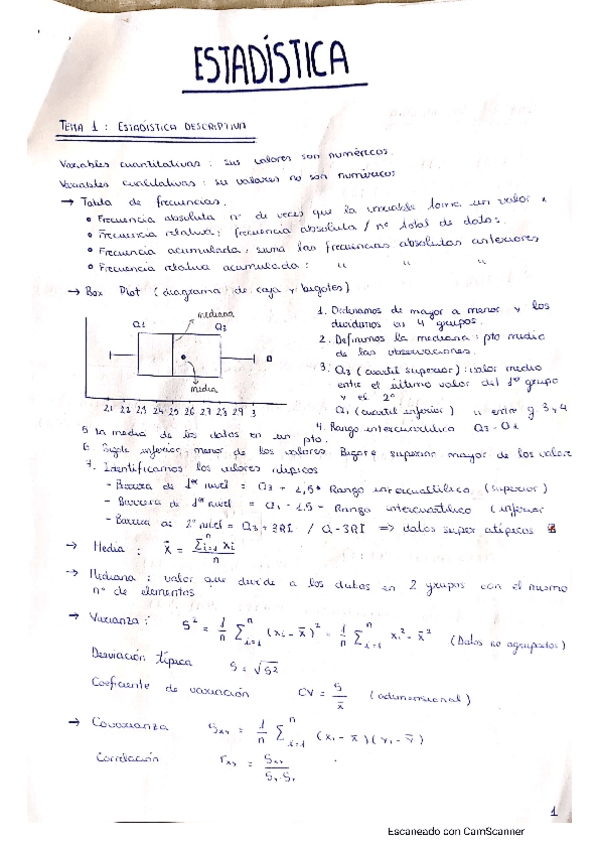 ESTADÍSTICA
TEMA 1 : ESTADÍSTICA DESCRIPTIVA
Variables cuantitativas : sus valores son numéricos.
Variables cualitativas : su valores no son numéricos
→ Tabla de frecuencias.
• Frecuencia absoluta nº de veces que la variable toma un valor
• Frecuencia relativa: frecuencia absoluta / nº total de datos.
• Frecuencia acumulada: suma las frecuencias absolutas anteriores
• Frecuencia relativa acumulada : " " "
→ Box Plot (diagrama de caja y bigotes)
mediana
Q1 Q3
media
21 22 23 24 25 26 27 23 29 3
1. Ordenamos de mayor a menor y los
dividimos en 4 grupos.
2. Definimos la mediana : pto medio
de las observaciones.
3. Q3 (cuartil superior) : valor medio
entre el último valor del 1er grupo
y el 2º
Q1 (cuartil inferior) " entre g 3 y 4
4. Rango intercuartílico Q3 - Q1
5 la media de los datos en un pto.
6. inferior, menor de los valores. Bigote superior mayor de los valore
7. Identificamos los valores atípicos
- Barrera de 1er nivel = Q3 + 1,5 * Rango intercuartílico (superior)
- Barrera de 1er nivel = Q1 - 1.5 - Rango intercuartílico (inferior
- Barrera 2º nivel = Q3 + 3RI / Q - 3RI => datos super atípicos
→ Media : x̄ = Σ i=1 n xi / n
→ Mediana : valor que divide a los datos en 2 grupos con el mismo
nº de elementos
→ Varianza : S² = 1/n Σ i=1 n (xi - x̄)² = 1/n Σ i=1 n xi² - x̄² (Datos no agrupados)
Desviación típica S = √S²
Coeficiente de variación CV = S / x̄ (adimensional)
→ Covarianza Sxy = 1/n Σ i=1 n (xi - x̄)(yi - ȳ)
Correlación rxy = Sxy / Sx · Sy
1
Escaneado con CamScanner